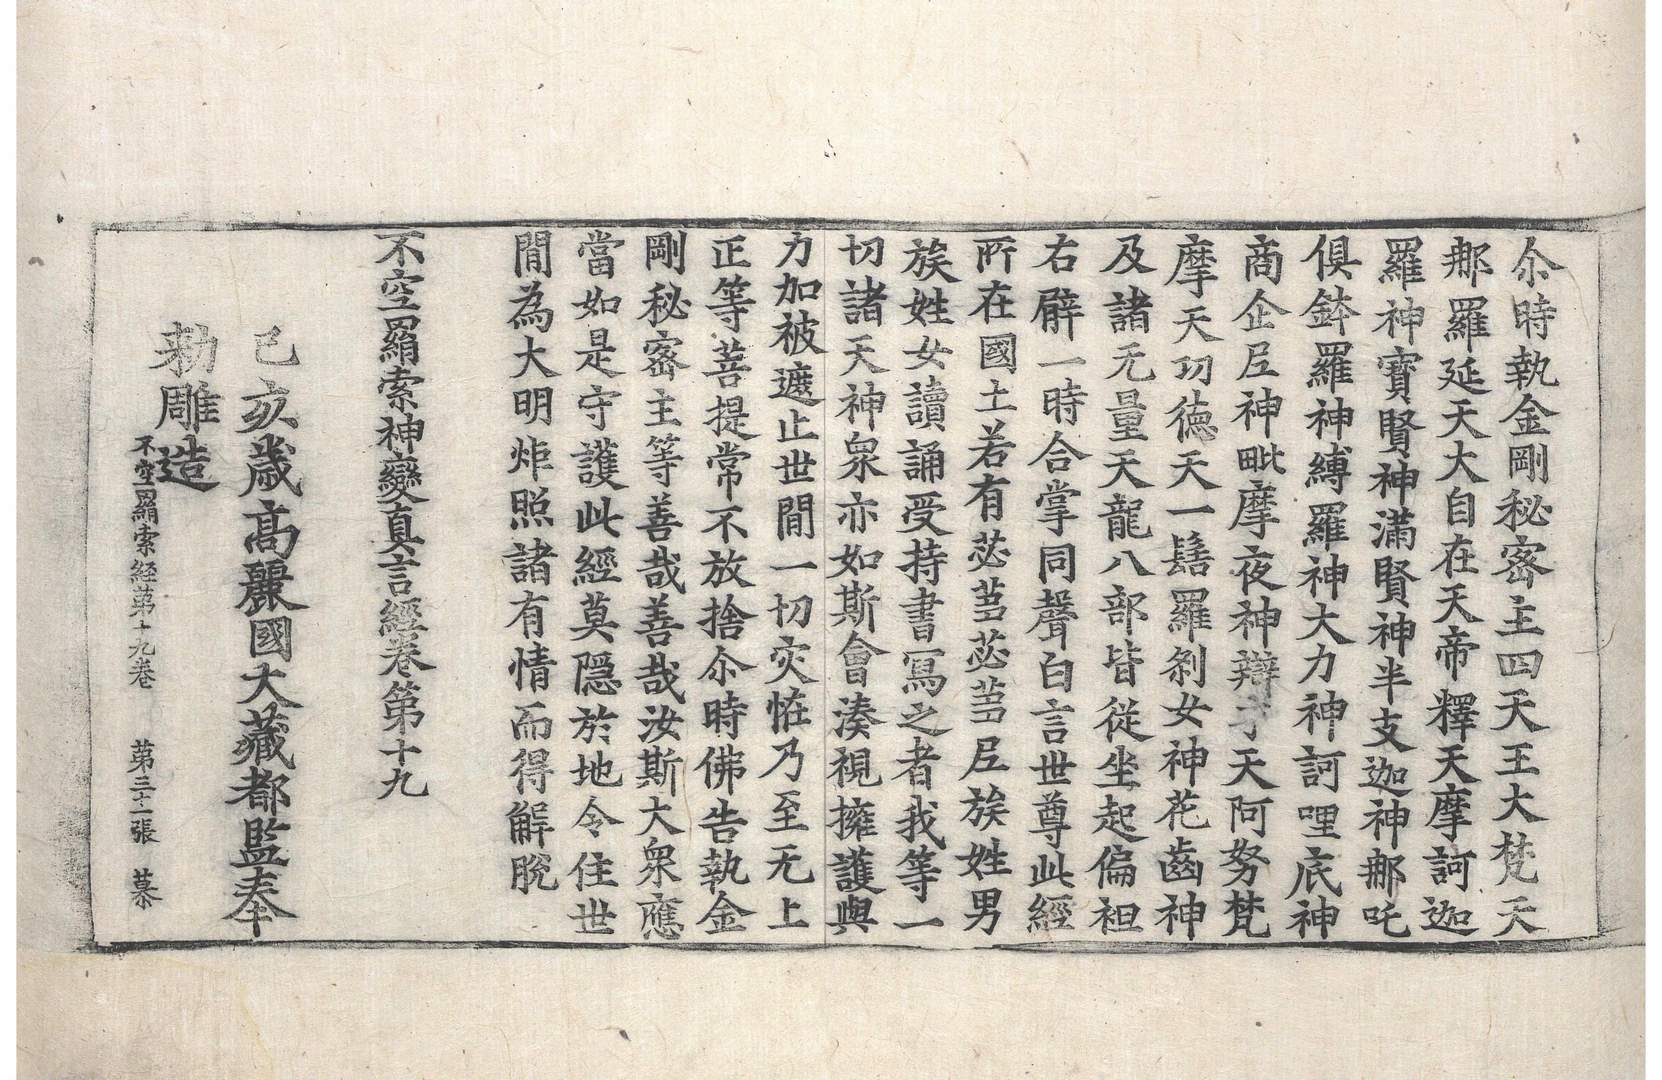 尒時執金剛秘密主四天王大梵天
那羅延天大自在天帝釋天摩訶迦
羅神寶賢神滿賢神半支迦神那吒
俱鉢羅神縛羅神大力神訶哩底神
商企𡰱神毗摩夜神辯才天阿努梵
摩天功德天一髻羅剎女神花齒神
及諸无量天龍八部皆從坐起偏袒
右髀一時合掌同聲白言世尊此經
所在國土若有苾芻苾芻𡰱族姓男
族姓女讀誦受持書寫之者我等一
切諸天神衆亦如斯會湊視擁護與
力加被遮止世間一切灾恠乃至无上
正等菩提常不放捨尒時佛告執金
剛秘密主等善哉善哉汝斯大衆應
當如是守護此經莫隱於地令住世
間為大明炬照諸有情而得解脫
不空羂索神變真言經卷第十九
己亥歲高麗國大藏都監奉
勑雕造
不空羂索經第十九卷 第三十一張 慕